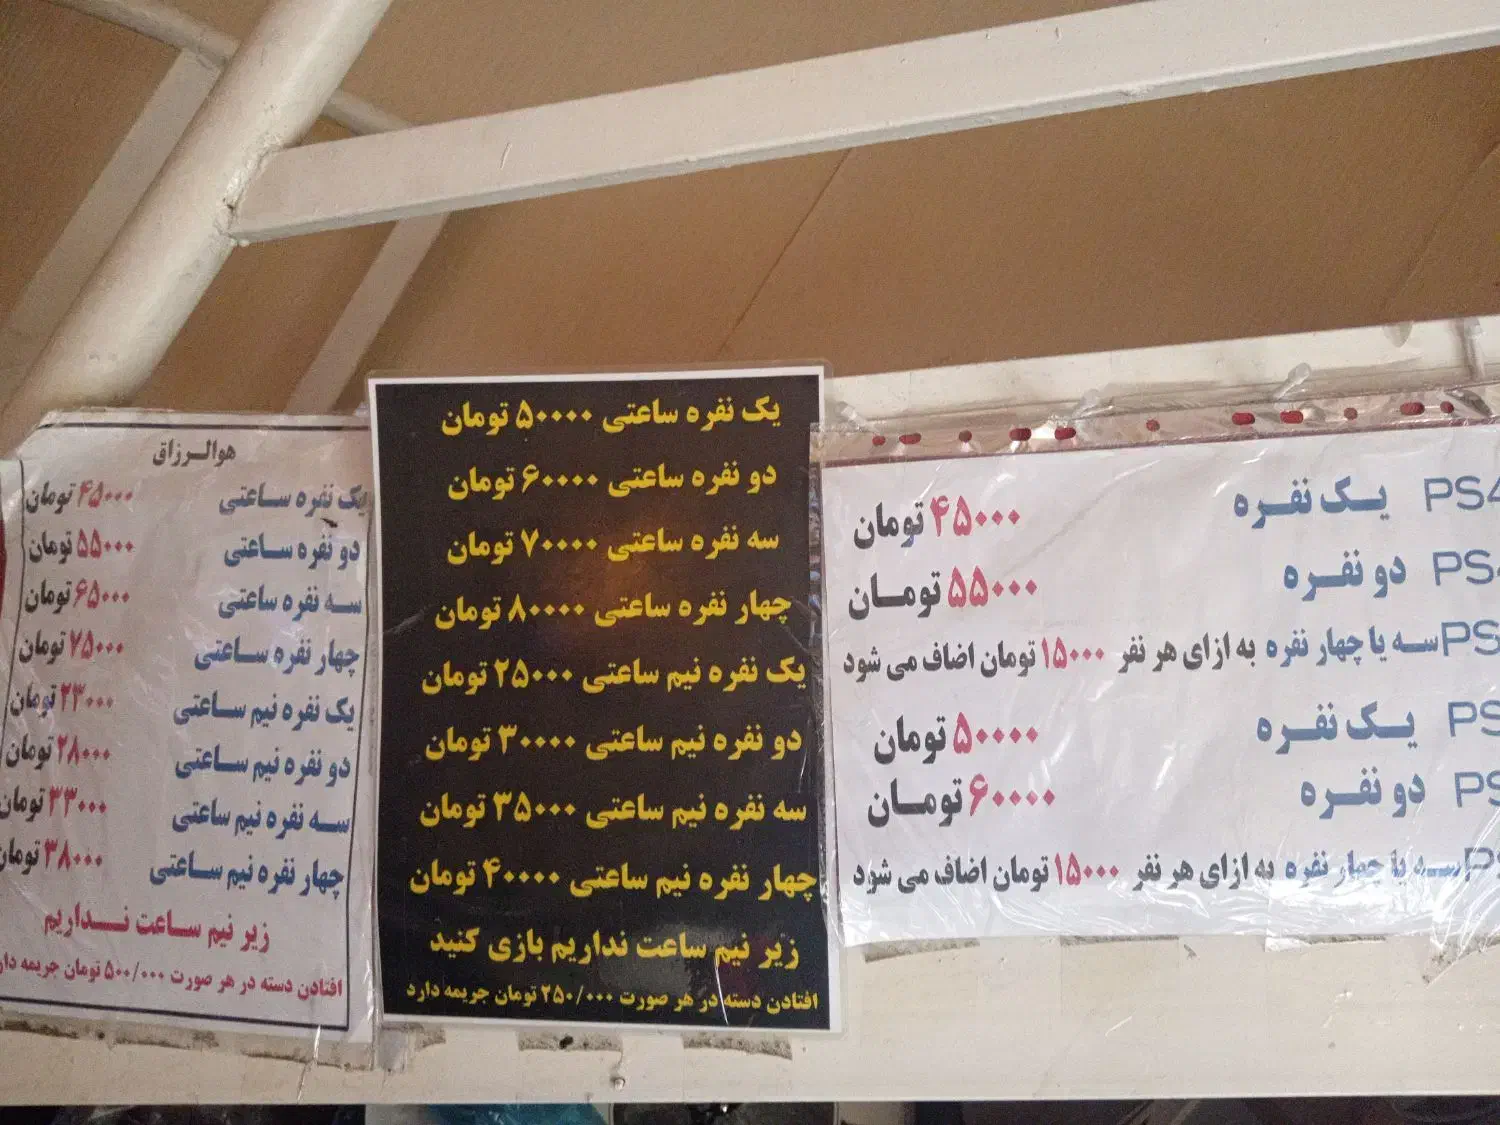 هوالرزاق
یک نفره ساعتی ۴۵۰۰۰ تومان
دو نفره ساعتی ۵۵۰۰۰ تومان
سه نفره ساعتی ۶۵۰۰۰ تومان
چهار نفره ساعتی ۷۵۰۰۰ تومان
یک نفره نیم ساعتی ۲۳۰۰۰ تومان
دو نفره نیم ساعتی ۲۸۰۰۰ تومان
سه نفره نیم ساعتی ۳۳۰۰۰ تومان
چهار نفره نیم ساعتی ۳۸۰۰۰ تومان
زیر نیم ساعت نداریم
افتادن دسته در هر صورت ۵۰۰/۰۰۰ تومان جریمه
یک نفره ساعتی ۵۰۰۰۰ تومان
دو نفره ساعتی ۶۰۰۰۰ تومان
سه نفره ساعتی ۷۰۰۰۰ تومان
چهار نفره ساعتی ۸۰۰۰۰ تومان
یک نفره نیم ساعتی ۲۵۰۰۰ تومان
دو نفره نیم ساعتی ۳۰۰۰۰ تومان
سه نفره نیم ساعتی ۳۵۰۰۰ تومان
چهار نفره نیم ساعتی ۴۰۰۰۰ تومان
زیر نیم ساعت نداریم بازی کنید
افتادن دسته در هر صورت ۲۵۰/۰۰۰ تومان جریمه دارد
PS4 یک نفره ۴۵۰۰۰ تومان
PS4 دو نفره ۵۵۰۰۰ تومان
PS سه یا چهار نفره به ازای هر نفر ۱۵۰۰۰ تومان اضاف می شود
PS یک نفره ۵۰۰۰۰ تومان
PS دو نفره ۶۰۰۰۰ تومان
PS سه یا چهار نفره به ازای هر نفر ۱۵۰۰۰ تومان اضاف می شود